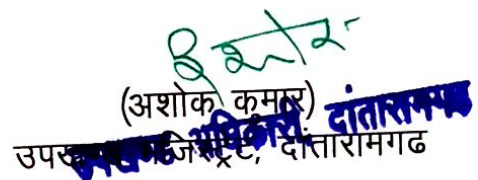 (अशोक कुमार)
उपखण्ड मजिस्ट्रेट, दांतारामगढ
उपखण्ड अधिकारी, दांतारामगढ